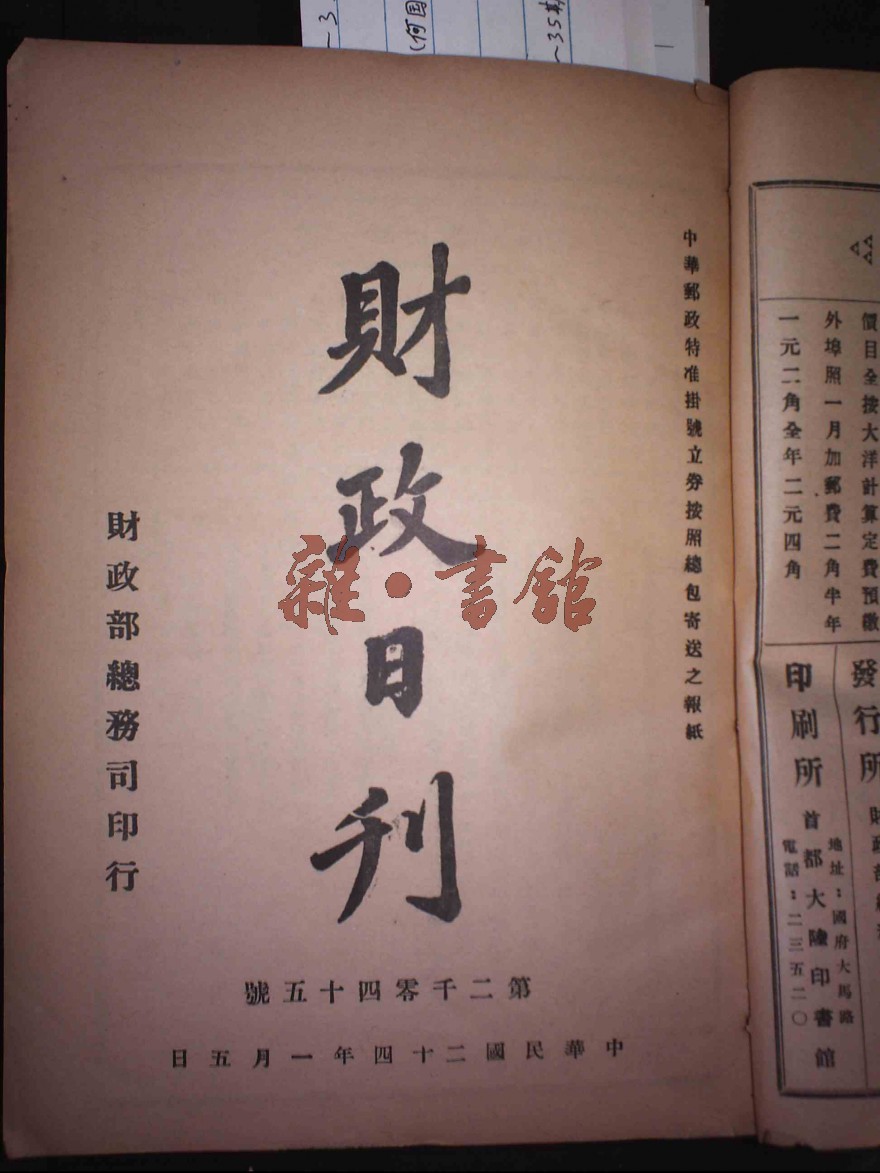 中華郵政特准掛號立券按照總包寄送之報紙
財政日刊
財政部總務司印行
第二千零四十五號
中華民國二十四年一月五日
雜·書館
價目全按大洋計算定費預繳
外埠照一月加郵費二角半年
一元二角全年二元四角
發行所
財政部總
印刷所
首都大陸印書館
地址：國府大馬路
電話：二三五二〇
(何国
~35期